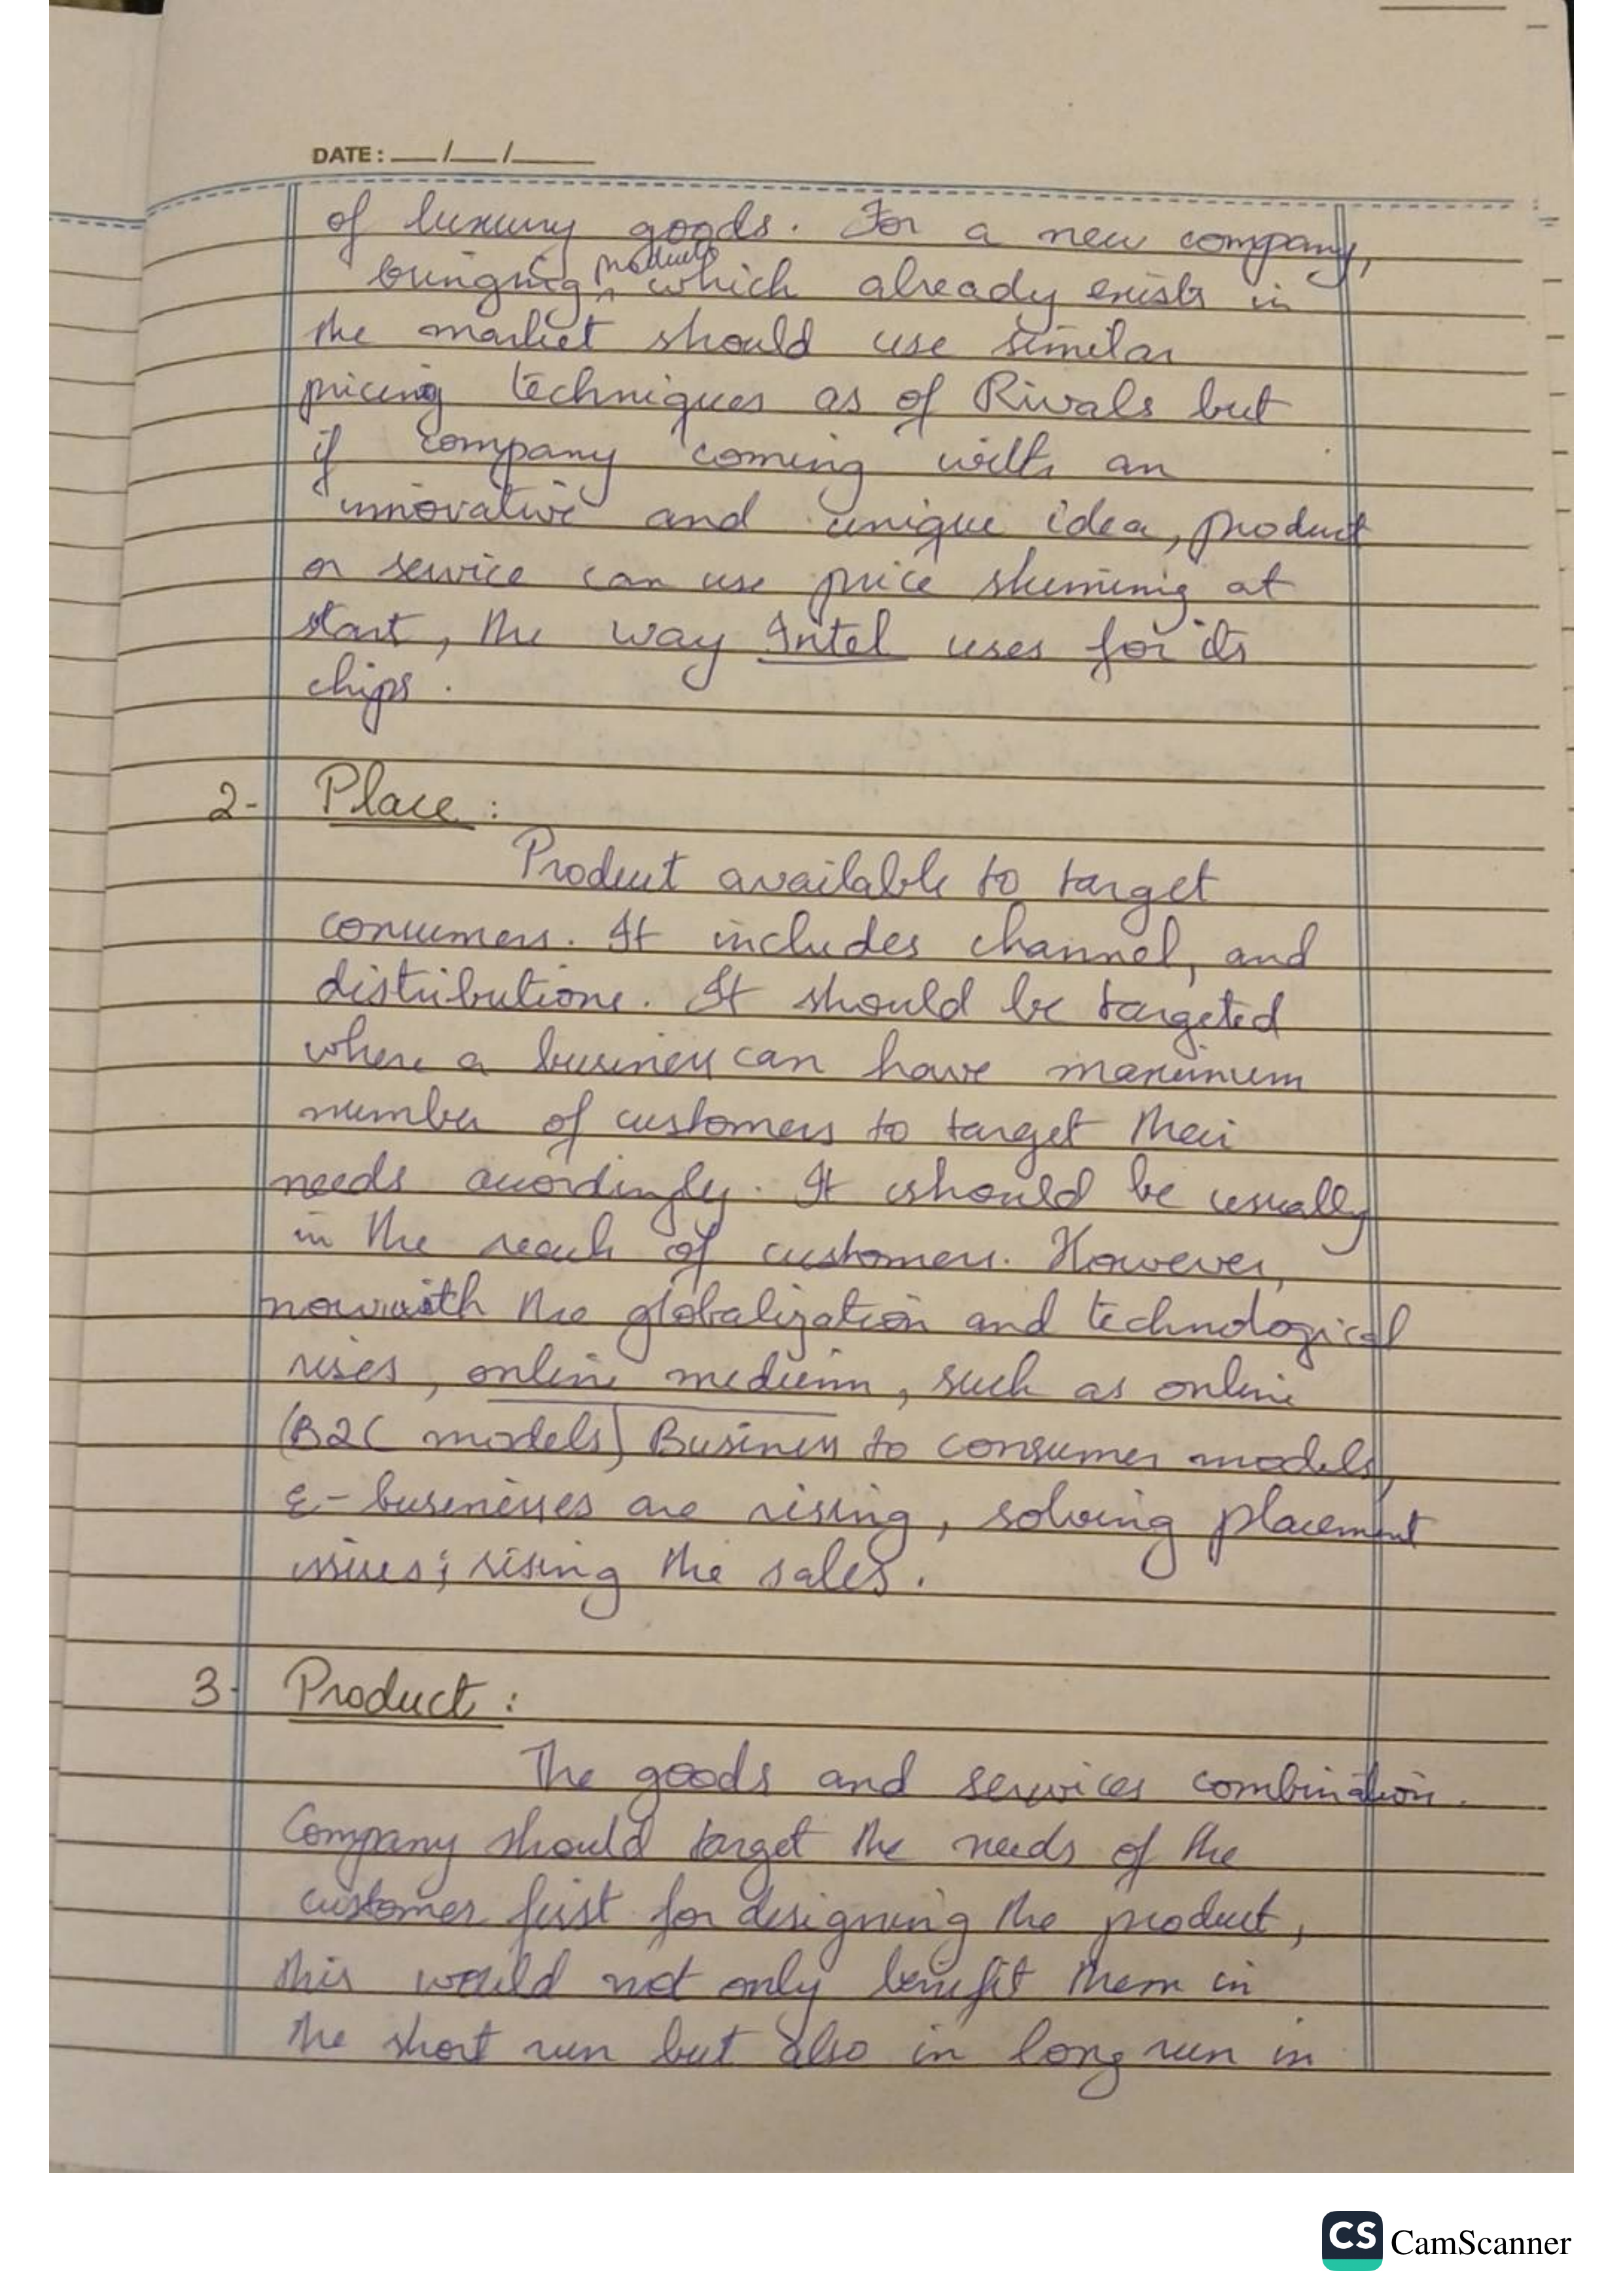 DATE: __/__/____
of luxury goods. For a new company,
bringing products which already exists in
the market should use similar
pricing techniques as of Rivals but
if company coming with an
innovative and unique idea, product
or service can use price skimming at
start, the way Intel uses for its
chips.
2- Place:
Product available to target
consumers. It includes channel, and
distributions. It should be targeted
where a business can have maximum
number of customers to target their
needs accordingly. It should be usually
in the reach of customers. However,
now with the globalization and technological
rises, online medium, such as online
(B2C models) Business to consumer models,
E-businesses are rising, solving placement
issues; rising the sales.
3- Product:
The goods and services combination.
Company should target the needs of the
customer first for designing the product,
this would not only benefit them in
the short run but also in long run in
CS CamScanner